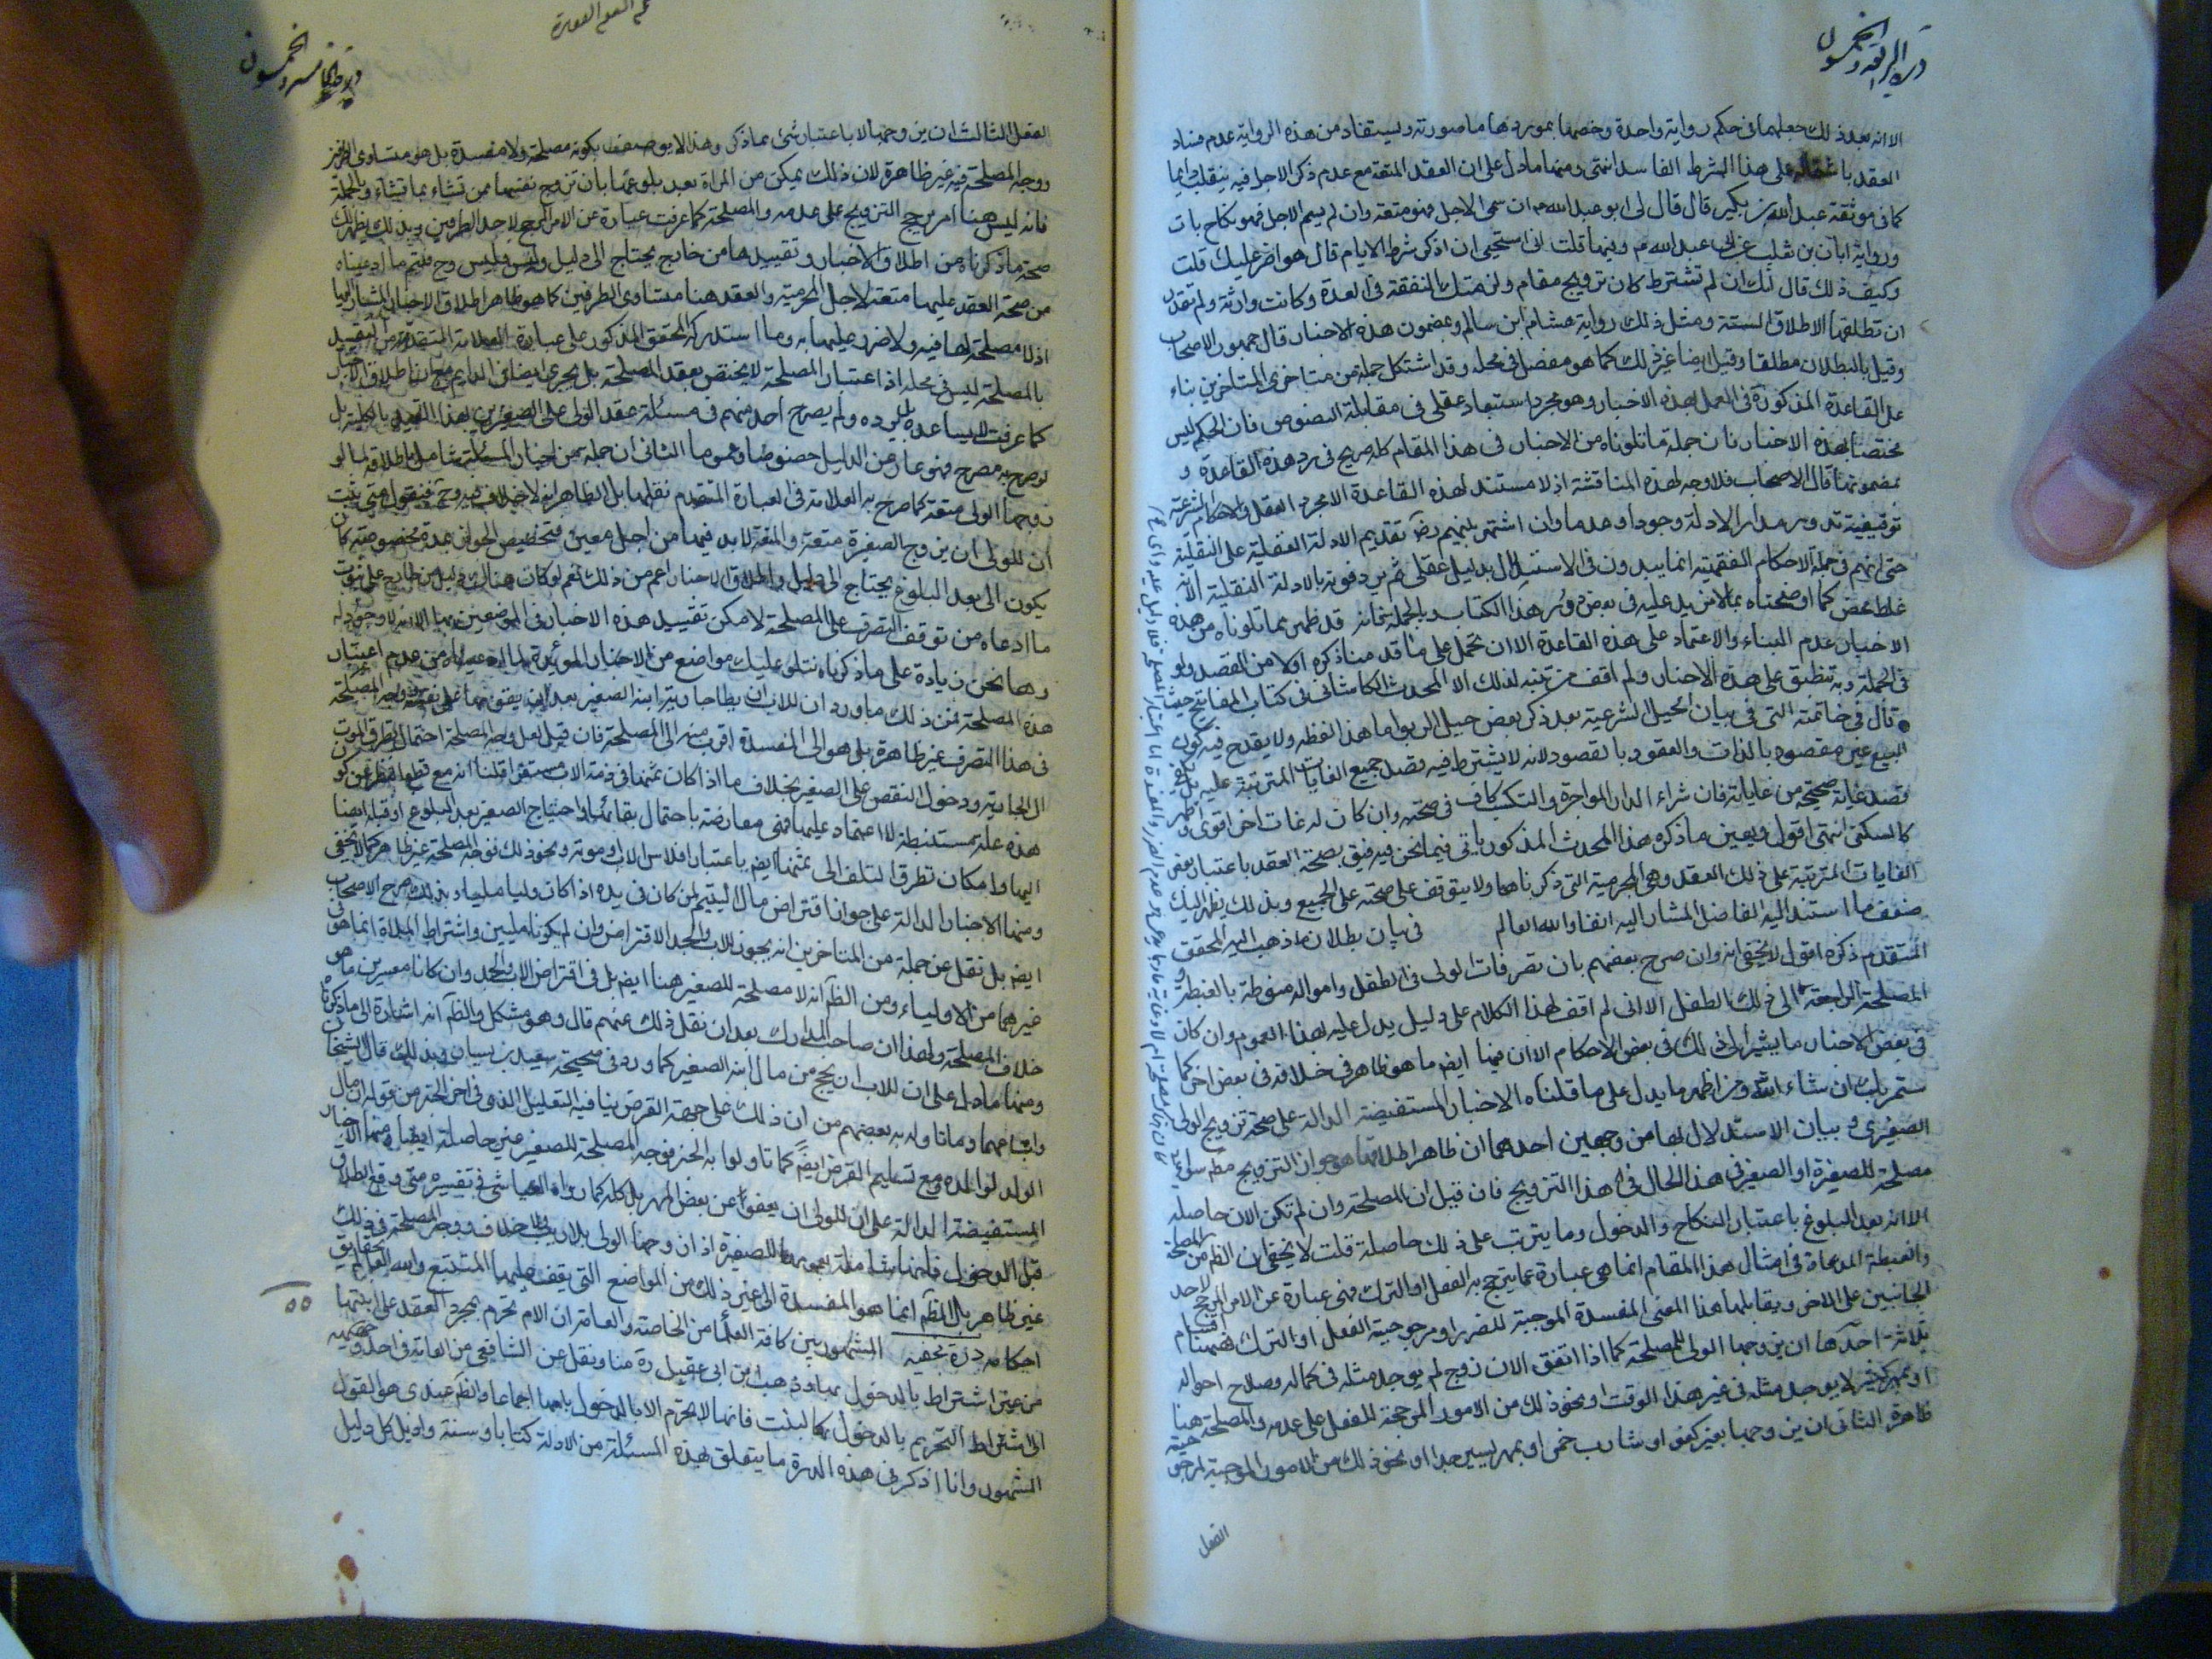 درة الرابعة والخمسون
الا انه بعد ذلك جعلهما في حكم رواية واحدة وخصهما بموردهما ما صورته ويستفاد من هذه الرواية عدم فساد
العقد باشتماله على هذا الشرط الفاسد انتهى ومنها ما دل على ان العقد المتعة مع عدم ذكر الاجل فيه ينقلب دائما
كما في موثقة عبد الله بن بكير قال قال لي ابو عبد الله ع ان سمى الاجل فهو متعة وان لم يسم الاجل فهو نكاح بات
ورواية ابان بن تغلب عن ابي عبد الله ع وفيها قلت اني استحيي ان اذكر شرط الايام قال هو اضر عليك قلت
وكيف ذلك قال انك ان لم تشترط كان تزويج مقام ولزمتك النفقة في العدة وكانت وارثة ولم تقدر
ان تطلقها الا طلاق السنة ومثل ذلك رواية هشام ابن سالم وبمضمون هذه الاخبار قال جمهور الاصحاب
وقيل بالبطلان مطلقا وقيل ايضا غير ذلك كما هو مفصل في محله وقد استشكل جملة من متاخري المتاخرين بناء
على القاعدة المذكورة في العمل بهذه الاخبار وهو مجرد استبعاد عقلي في مقابلة النصوص فان الحكم ليس
مختصا بهذه الاخبار فان جملة ما تلوناه من الاخبار في هذا المقام كله صريح في رد هذه القاعدة و
بمضمونها قال الاصحاب فلا وجه لهذه المناقشة اذ لا مستند لهذه القاعدة الا مجرد العقل والاحكام الشرعية
توقيفية تدور مدار الادلة وجودا وعدما وان اشتهر بينهم رض تقديم الادلة العقلية على النقلية
حتى انهم في جملة الاحكام الفقهية انما يبدون في الاستدلال بدليل عقلي ثم يردفونه بالادلة النقلية الا انه
غلط محض كما اوضحناه بما لا مزيد عليه في بعض درر هذا الكتاب وبالجملة فانه قد ظهر بما تلوناه من هذه
الاخبار عدم البناء والاعتماد على هذه القاعدة الا ان تحمل على ما قدمنا ذكره اولا من القصد ولو
في الجملة وبه تنطبق على هذه الاخبار ولم اقف من تنبه لذلك الا المحدث الكاشاني في كتاب المفاتيح حيث
قال في خاتمته التي في بيان الحيل الشرعية بعد ذكر بعض حيل الربوا ما هذا لفظه ولا يقدح فيه كون
البيع غير مقصود بالذات والعقود بالقصود لانه لا يشترط فيه قصد جميع الغايات المترتبة عليه بل يكفي
قصد غاية صحيحة من غاياته فان شراء الدار للمواجرة والتكسب كاف في صحته وان كان له غايات اخر اقوى واظهر
كالسكنى انتهى اقول وبعين ما ذكره هذا المحدث المذكور ياتي فيما نحن فيه فيق بصحة العقد باعتبار بعض
الغايات المترتبة على ذلك العقد وهي المحرمية التي ذكرناها ولا يتوقف على صحته على الجميع وبذلك يظهر اليك
ضعف ما استند اليه الفاضل المشار اليه انفا والله العالم في بيان بطلان ما ذهب اليه المحقق
المتقدم ذكره اقول لا يخفى انه وان صرح بعضهم بان تصرفات الولي في الطفل وامواله منوطة بالغبطة و
المصلحة الراجعة الى ذلك الطفل الا اني لم اقف لهذا الكلام على دليل يدل عليه بهذا العموم وان كان
في بعض الاخبار ما يشير الى ذلك في بعض الاحكام الا ان فيها ايض ما هو ظاهر في خلافه في بعض اخر كما
ستمر بك ان شاء الله ومن اظهر ما يدل على ما قلناه الاخبار المستفيضة الدالة على صحة تزويج الولي
الصغيرى وبيان الاستدلال بها من وجهين احدهما ان ظاهر اطلاقها هو جواز التزويج مطلقا
مصلحة للصغيرة او الصغير في هذا الحال في هذا التزويج فان قيل ان المصلحة وان لم تكن الان حاصلة
الا انه بعد البلوغ باعتبار النكاح والدخول وما يترتب على ذلك حاصلة قلت لا يخفى ان الظم من المصلحة
والغبطة المدعاة في امثال هذا المقام انما هي عبارة عما يترجح به الفعل او الترك فهي عبارة عن الامر المرجح لاحد
الجانبين على الاخر ويقابلها هذا المعنى المفسدة الموجبة للضرر او مرجوحية الفعل او الترك فهنا اقسام
ثلاثة احدها ان يزوجها الولي للمصلحة كما اذا اتفق الان زوج لم يوجد مثله في كماله وصلاح احواله
او بمهر كثير لا يوجد مثله في غير هذا الوقت او نحو ذلك من الامور المرجحة للفعل على عدمه والمصلحة هنا
ظاهرة الثاني ان يزوجها بغير كفو او شارب خمر او بمهر يسير جدا او نحو ذلك من الامور الموجبة لمرجوحية
الفعل
درة الخامسة والخمسون
الفعل الثالث ان يزوجها لا باعتبار شئ مما ذكر وهذا لا يوصف بكونه مصلحة ولا مفسدة بل هو متساوي الطرفين
ووجه المصلحة فيه غير ظاهرة لان ذلك يمكن من المراة بعد بلوغها بان تزوج نفسها ممن تشاء بما تشاء وبالجملة
فانه ليس هنا امر يرجح التزويج على عدمه والمصلحة كما عرفت عبارة عن الامر المرجح لاحد الطرفين وبذلك يظهر لك
صحة ما ذكرناه من اطلاق الاخبار وتقييدها من خارج يحتاج الى دليل وليس فليس وح فيتم ما ادعيناه
من صحة العقد عليها متعة لاجل المحرمية والعقد هنا متساوي الطرفين كما هو ظاهر اطلاق الاخبار المشار اليها
اذ لا مصلحة لها فيه ولا ضرر عليها به وما استدركه المحقق المذكور على عبارة العلامة المتقدمة من التقييد
بالمصلحة ليس في محله اذ اعتبار المصلحة لا يختص بعقد المصلحة بل يجري ايضا في الدايم مع ان اطلاق الاخبار
كما عرفت لا يساعده بل يرده ولم يصرح احد منهم في مسئلة عقد الولي على الصغيرين بهذا القيد بالكلية بل
لو صرح به مصرح فهو عار عن الدليل خصوصا وعموما الثاني ان جملة من اخبار المسئلة شامل باطلاقه لما لو
زوجها الولي متعة كما صرح به العلامة في العبارة المتقدم نقلها بل الظاهر انه لا خلاف فيه وح فنقول متى ثبت
ان للولي ان يزوج الصغيرة متعة والمتعة لا بد فيها من اجل معين فتخصيص الجواز بمدة مخصوصة كان
يكون الى بعد البلوغ يحتاج الى دليل واطلاق الاخبار اعم من ذلك نعم لو كان هناك دليل من خارج على ثبوت
ما ادعاه من توقف التصرف على المصلحة لامكن تقييد هذه الاخبار في الموضعين بها الا انه لا وجود له
وها نحن زيادة على ما ذكرناه نتلو عليك مواضع من الاخبار المؤيدة لما ادعيناه من عدم اعتبار
هذه المصلحة فمن ذلك ما ورد ان للاب ان يطا جارية ابنه الصغير بعد ان يقومها على نفسه ووجه المصلحة
في هذا التصرف غير ظاهرة بل هو الى المفسدة اقرب منه الى المصلحة فان قيل لعل وجه المصلحة احتمال تطرق الموت
الى الجارية ودخول النقص على الصغير بخلاف ما اذا كان ثمنها في ذمة الاب مستقرا قلنا انه مع قطع النظر عن كون
هذه علة مستنبطة لا اعتماد عليها فهي معارضة باحتمال بقائها او احتياج الصغير بعد البلوغ او قبله ايضا
اليها وامكان تطرق التلف الى ثمنها ايض باعتبار افلاس الاب او موته ونحو ذلك فوجه المصلحة غير ظاهر كما لا يخفى
ومنها الاخبار الدالة على جواز اقتراض مال اليتيم لمن كان في يده اذا كان وليا مليا وبذلك صرح الاصحاب
ايض بل نقل عن جملة من المتاخرين انه يجوز للاب والجد الاقتراض وان لم يكونا مليين واشتراط الملاءة انما هو في
غيرهما من الاولياء ومن الظم انه لا مصلحة للصغير هنا ايض بل في اقتراض الاب والجد وان كانا معسرين ما هو
خلاف المصلحة ولهذا ان صاحب المدارك بعد ان نقل ذلك عنهم قال وهو مشكل والظم انه اشارة الى ما ذكرناه
ومنها ما دل على ان للاب ان يحج من مال ابنه الصغير كما ورد في صحيحة سعيد بن يسار وبذلك قال الشيخان
واتباعهما وما تاوله به بعضهم من ان ذلك على جهة القرض ينافيه التعليل الذي في اخر الخبر من قوله ان مال
الولد لوالده ومع تسليم القرض ايض كما تاولوا به الخبر فوجه المصلحة للصغير غير حاصلة ايضا ومنها الاخبار
المستفيضة الدالة على ان للولي ان يعفو عن بعض المهر بل كله كما رواه العياشي في تفسيره متى وقع الطلاق
قبل الدخول فانها شاملة بعمومها للصغيرة اذا زوجها الولي بلا ريب ولا خلاف ووجه المصلحة في ذلك
غير ظاهر بل الظم انما هو المفسدة الى غير ذلك من المواضع التي يقف عليها المتتبع والله العالم بحقايق
احكامه درة نجفية المشهور بين كافة العلماء من الخاصة والعامة ان الام تحرم بمجرد العقد على ابنتها
من غير اشتراط بالدخول بها وذهب ابن ابي عقيل ره منا ونقل عن الشافعي من العامة في احد قوليه
الى اشتراط التحريم بالدخول بها كالبنت فانها لا تحرم الا بالدخول بامها اجماعا والظم عندي هو القول
المشهور وانا اذكر في هذه الدرة ما يتعلق بهذه المسئلة من الادلة كتابا وسنة واذيل كل دليل
٥٥